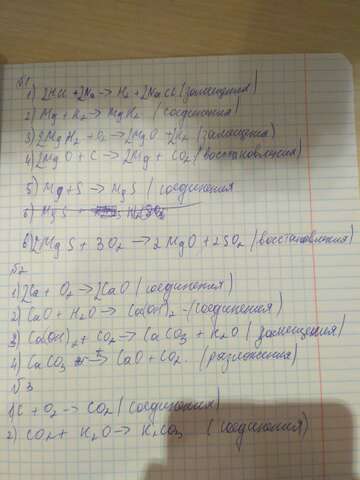 б1
1) 2HCl + 2Na → H₂ + 2NaCl (замещения)
2) Mg + H₂ → MgH₂ (соединения)
3) 2MgH₂ + O₂ → 2MgO 2H₂ (замещения)
4) 2MgO + C → 2Mg + CO₂ (восстановления)
5) Mg + S → MgS (соединения
6) MgS +
6) 2MgS + 3O₂ → 2MgO + 2SO₂ (восстановления)
б2
1) 2Ca + O₂ → 2CaO (соединения)
2) CaO + H₂O → Ca(OH)₂ - (соединения)
3) Ca(OH)₂ + CO₂ → CaCO₃ + H₂O (замещения)
4) CaCO₃ t→ CaO + CO₂. (разложения)
б3
1) C + O₂ → CO₂ (соединения)
2) CO₂ + H₂O → H₂CO₃ (соединения)